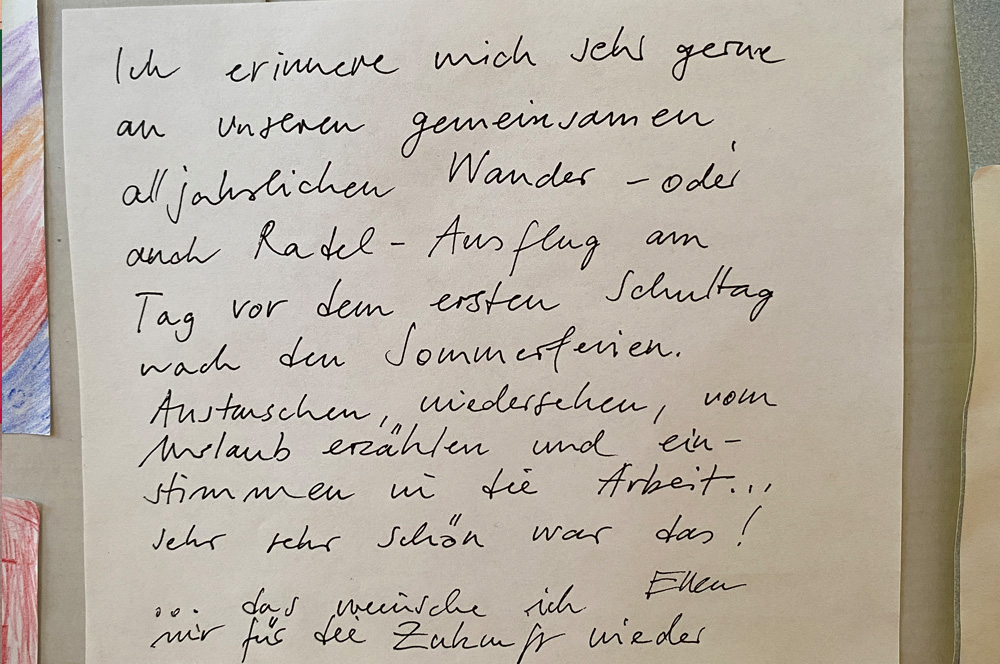 Ich erinnere mich sehr gerne
an unseren gemeinsamen
alljährlichen Wander - oder
auch Radel - Ausflug am
Tag vor dem ersten Schultag
nach den Sommerferien.
Austauschen, wiedersehen, vom
Urlaub erzählen und ein-
stimmen in die Arbeit...
sehr sehr schön war das!
Ellen
... das wünsche ich
mir für die Zukunft wieder